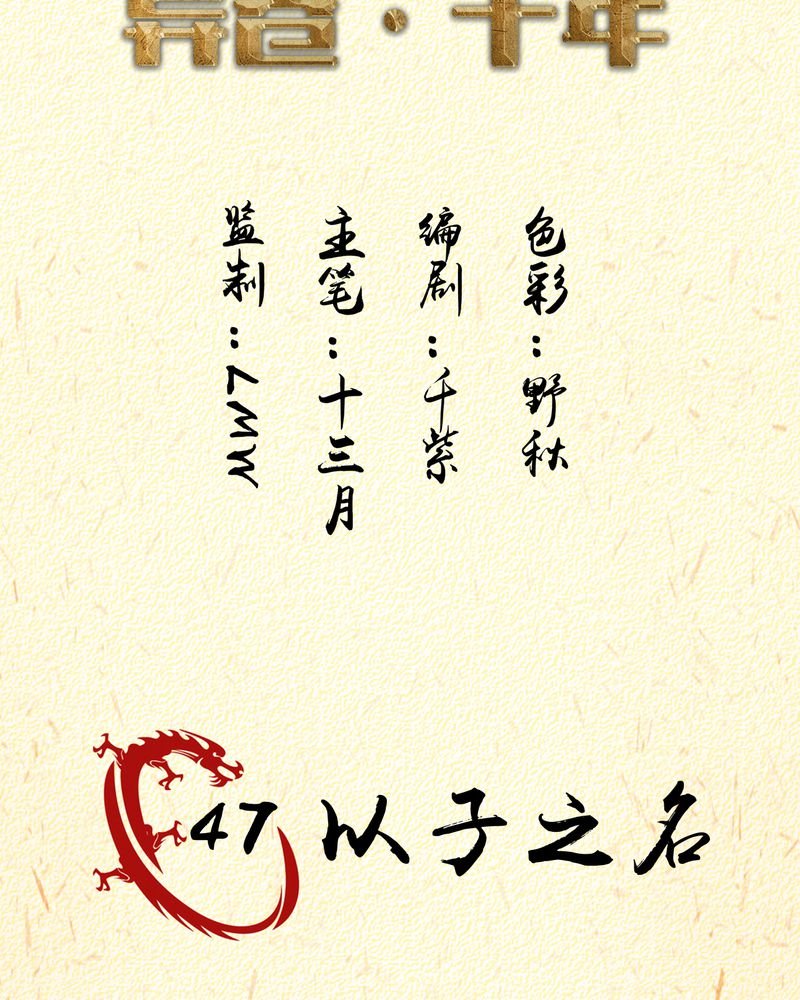 监制：
主笔：十三月
编剧：千紫
色彩：野秋
47 以子之名